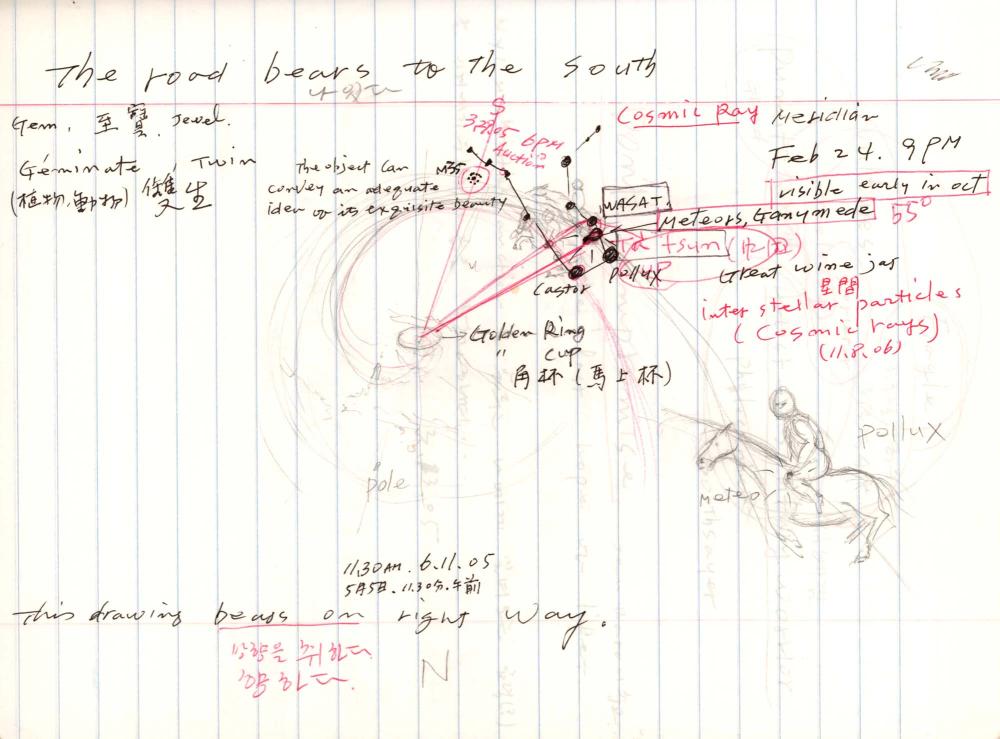 The road bears to the south
나 있다
Gem, 至寶, Jewel.
Géminate, Twin
(植物, 動物) 雙生
The object can
convey an adequate
idea of its exquisite beauty
M35
$
3,2,05 6PM
Auction
Cosmic Ray
Meridian
Feb 24. 9PM
visible early in oct
WASAT.
Meteors, Ganymede
55°
+sun
UP
Castor
Pollux
Great wine jar
星間
inter stellar particles
(Cosmic rays)
(11.8.06)
Golden Ring
" cup
角杯 (馬上杯)
pole
Pollux
Meteor
11.30AM. 6.11.05
5月5日. 11.30分. 午前
This drawing bears on right way.
방향을 취하다.
향하다.
N